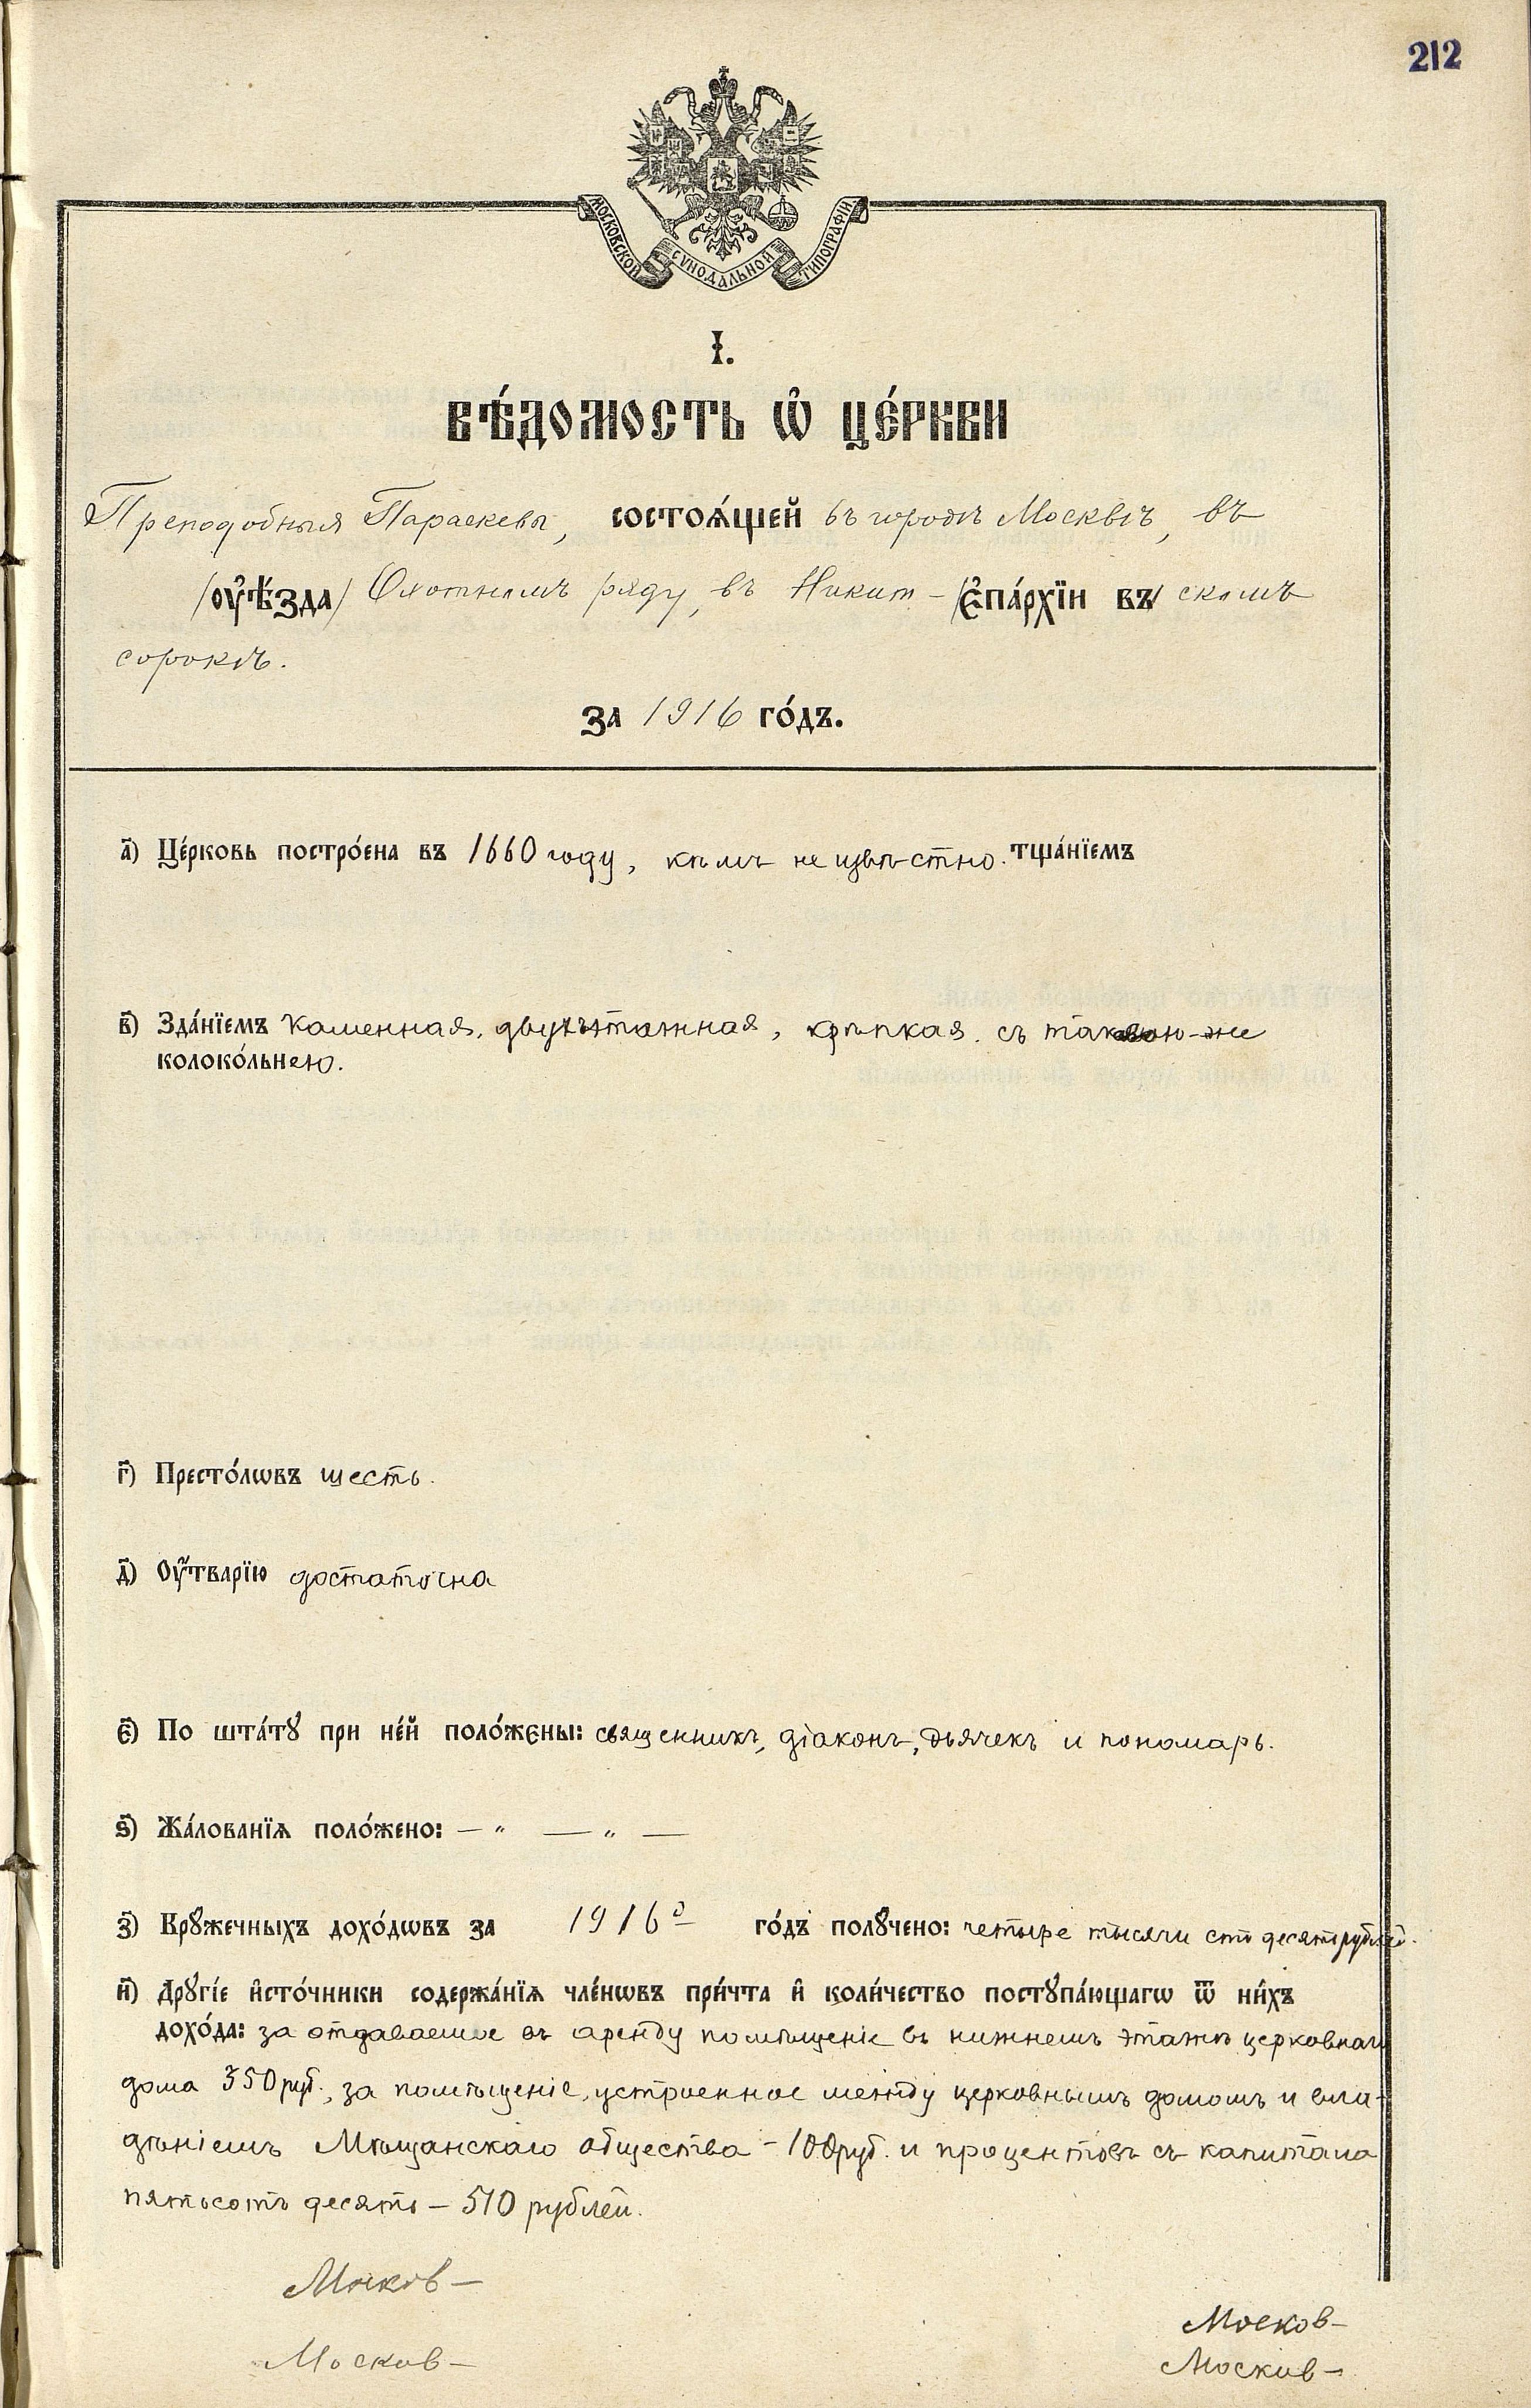 212
МОСКОВСКОЙ СѴНОДАЛЬНОЙ ТИПОГРАФІИ.
І.
ВѢ́ДОМОСТЬ Ѡ҆ ЦЕ́РКВИ
Преподобныя Параскевы, состоѧ́щей въ городѣ Москвѣ, въ
(ᲂу҆ѣ́зда) Охотномъ ряду, въ Никит- (Є҆па́рхїи въ) скомъ
сорокѣ.
за 1916 го́дъ.
а҃) Це́рковь постро́ена въ 1660 году, кѣмъ не извѣстно. тща́нїемъ
в҃) Зда́нїемъ каменная, двухъэтажная, крѣпкая, съ таковою-же
колоко́льнею.
г҃) Престо́лѡвъ шесть.
д҃) Оу҆́тварїю достаточна
є҃) По шта́тꙋ при не́й поло́жены: священникъ, діаконъ, дьячекъ и пономарь.
ѕ҃) Жа́лованїѧ поло́жено: — „ — „ —
з҃) Крꙋжечныхъ дохо́дѡвъ за 1916й го́дъ полꙋ́чено: четыре тысячи сто десять рублей.
и҃) Дрꙋгі́е и҆сто́чники содержа́нїѧ чле́нѡвъ при́чта и҆ коли́чество постꙋпа́ющагѡ ѿ ни́хъ
дохо́да: за отдаваемое въ аренду помѣщеніе въ нижнемъ этажѣ церковнаго
дома 350 руб., за помѣщеніе, устроенное между церковнымъ домомъ и вла-
дѣніемъ Мѣщанскаго общества - 100 руб. и процентовъ съ капитала
пятьсотъ десять — 510 рублей.
Москов-
Москов-
Москов-
Москов-